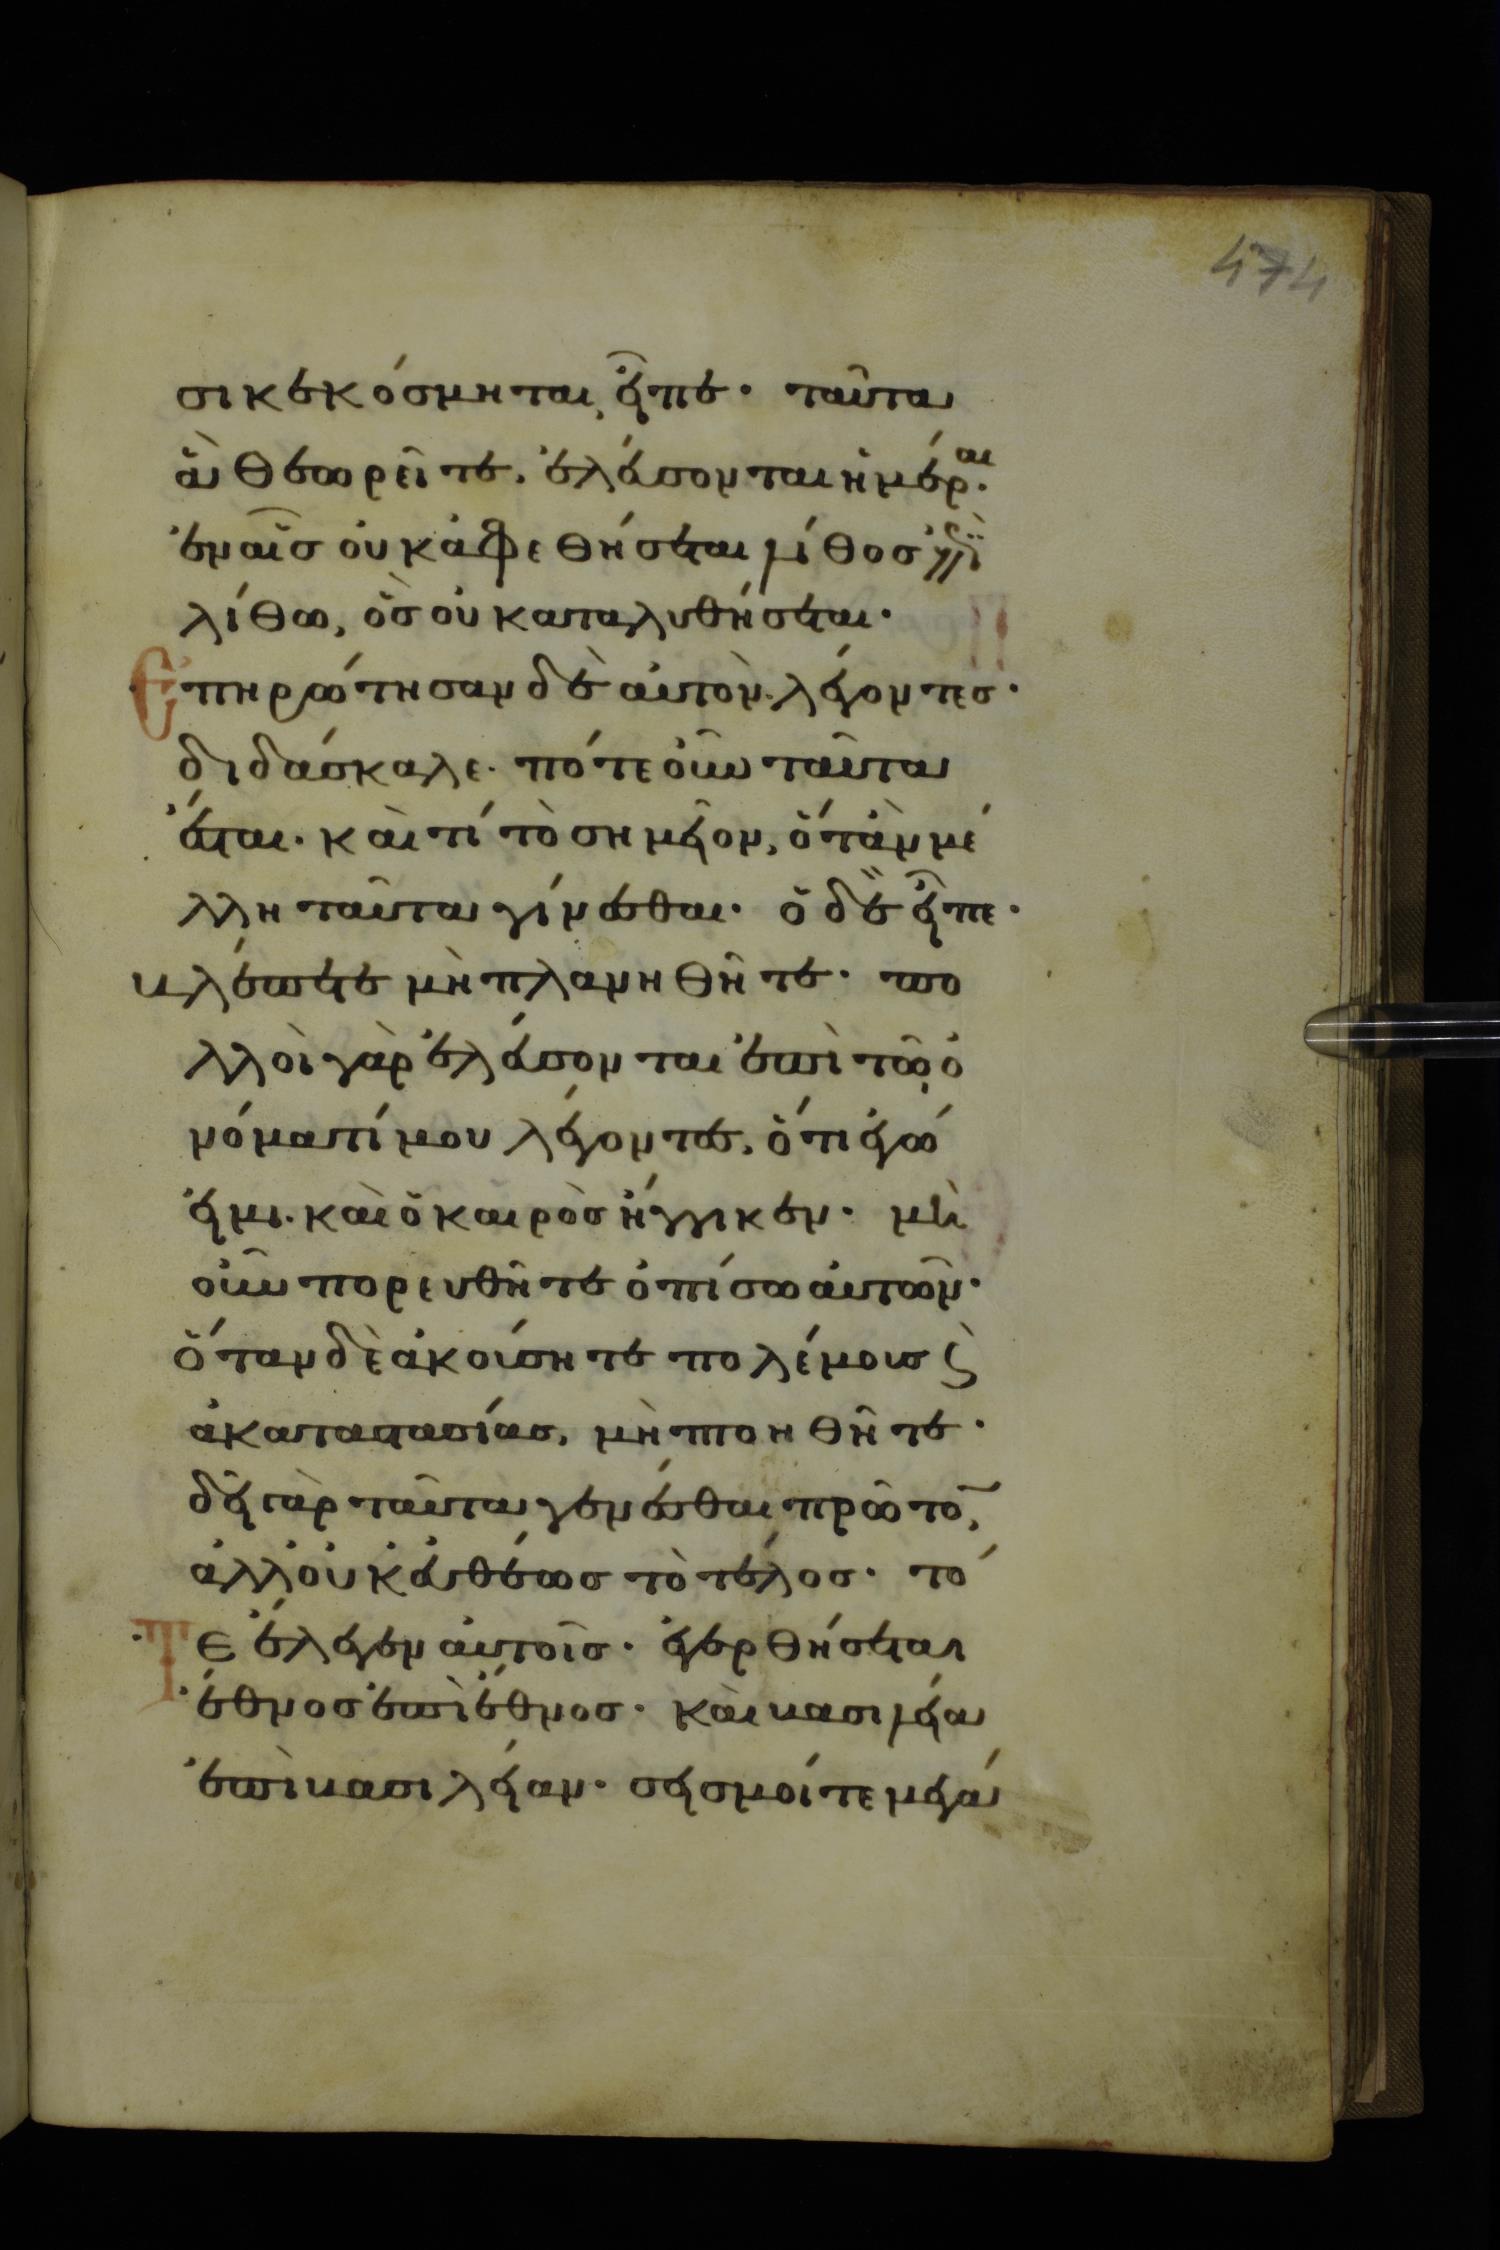 474
σι κεκόσμηται, εἶπε· ταῦτα
ἃ θεωρεῖτε, ἐλεύσονται ἡμέραι·
ἐν αἷσ οὐκ ἀφεθήσεται λίθοσ ἐπὶ
λίθω, ὃσ οὐ καταλυθήσεται·
Ἐπηρώτησαν δὲ αὐτὸν· λέγοντεσ·
διδάσκαλε· πότε οὖν ταῦτα
ἔσται· καὶ τί τὸ σημεῖον, ὅταν μέ
λλη ταῦτα γίνεσθαι· ὁ δὲ εἶπε·
βλέπετε μὴ πλανηθῆτε· πο
λλοὶ γὰρ ἐλεύσονται ἐπὶ τῶ ὀ
νόματί μου λέγοντεσ, ὅτι ἐγώ
εἰμι· καὶ ὁ καιρὸσ ἤγγικεν· μὴ
οὖν πορευθῆτε ὀπίσω αὐτῶν·
ὅταν δὲ ἀκούσητε πολέμουσ ϗ
ἀκαταστασίασ, μὴ πτοηθῆτε·
δεῖ γὰρ ταῦτα γενέσθαι πρῶτον,
ἀλλ οὐκ εὐθέωσ τὸ τέλοσ· τό
Τε ἔλεγεν αὐτοῖσ· ἐγερθήσεται
ἔθνοσ ἐπὶ ἔθνοσ· καὶ βασιλεία
ἐπὶ βασιλείαν· σεισμοί τε μεγά